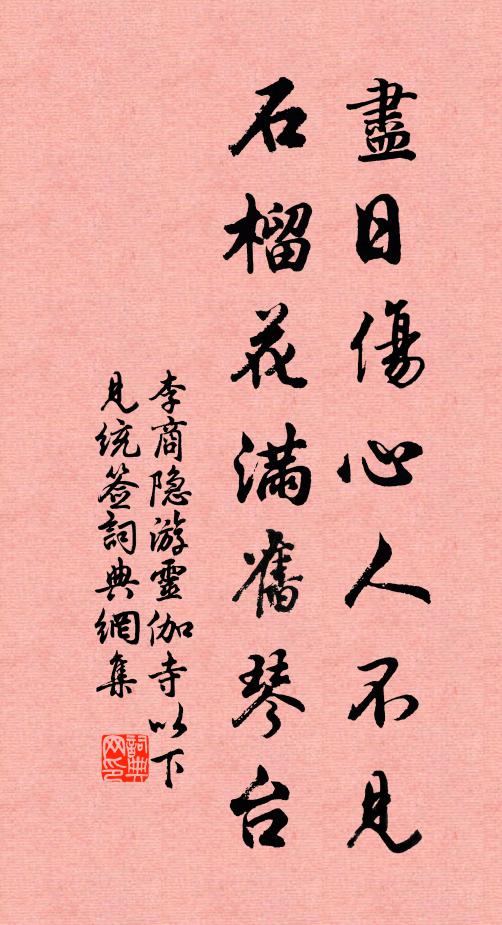 盡日傷心人不見
石榴花滿舊琴台
李商隐游靈伽寺以下
見统签詞典網集
詞典网印